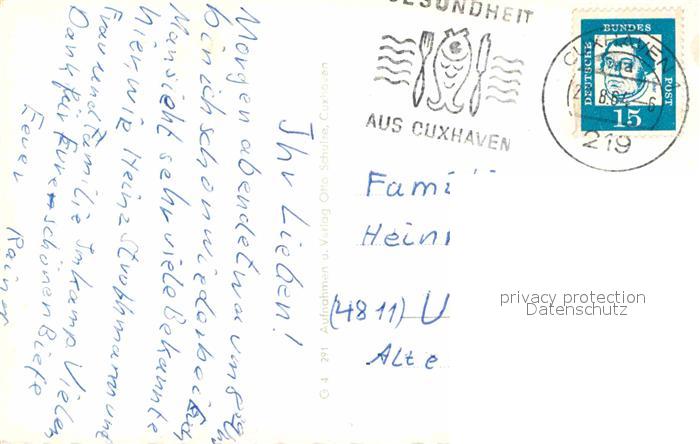 Ihr Lieben!
Morgen abend etwa um
bin ich schon wieder bei Euch
Man sieht sehr viele Bekannte
hier, wie Heinz Strothmann und
Frau und Familie Imkamp. Vielen
Dank für Eure schönen Briefe
Euer
Rainer
G 4 291 Aufnahmen u. Verlag Otto Schulke, Cuxhaven
GESUNDHEIT
AUS CUXHAVEN
CUXHAVEN 1
219
DEUTSCHE
BUNDES
POST
15
Fami
Hein
(4811) U
Alte
privacy protection
Datenschutz